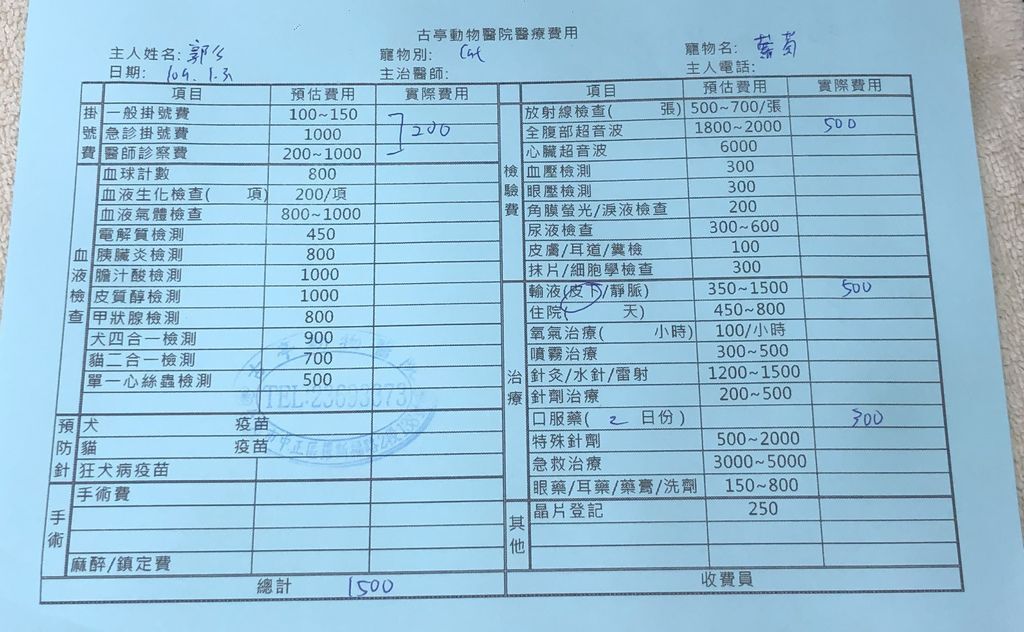 古亭動物醫院醫療費用
主人姓名: 寵物別: Cat 寵物名: 藍莓
日期: 109.1.31 主治醫師: 主人電話:
項目 預估費用 實際費用 項目 預估費用 實際費用
掛號費 一般掛號費 100~150
急診掛號費 1000 200
醫師診察費 200~1000
血液檢查 血球計數 800
血液生化檢查( 項) 200/項
血液氣體檢查 800~1000
電解質檢測 450
胰臟炎檢測 800
膽汁酸檢測 1000
皮質醇檢測 1000
甲狀腺檢測 800
犬四合一檢測 900
貓二合一檢測 700
單一心絲蟲檢測 500
預防針 犬 疫苗
貓 疫苗
狂犬病疫苗
手術 手術費
麻醉/鎮定費
總計 1500
檢驗費 放射線檢查( 張) 500~700/張
全腹部超音波 1800~2000 500
心臟超音波 6000
血壓檢測 300
眼壓檢測 300
角膜螢光/淚液檢查 200
尿液檢查 300~600
皮膚/耳道/糞檢 100
抹片/細胞學檢查 300
治療 輸液(皮下/靜脈) 350~1500 500
住院( 天) 450~800
氧氣治療( 小時) 100/小時
噴霧治療 300~500
針灸/水針/雷射 1200~1500
針劑治療 200~500
口服藥( 2 日份) 300
特殊針劑 500~2000
急救治療 3000~5000
眼藥/耳藥/藥膏/洗劑 150~800
其他 晶片登記 250
收費員
TEL:23693373